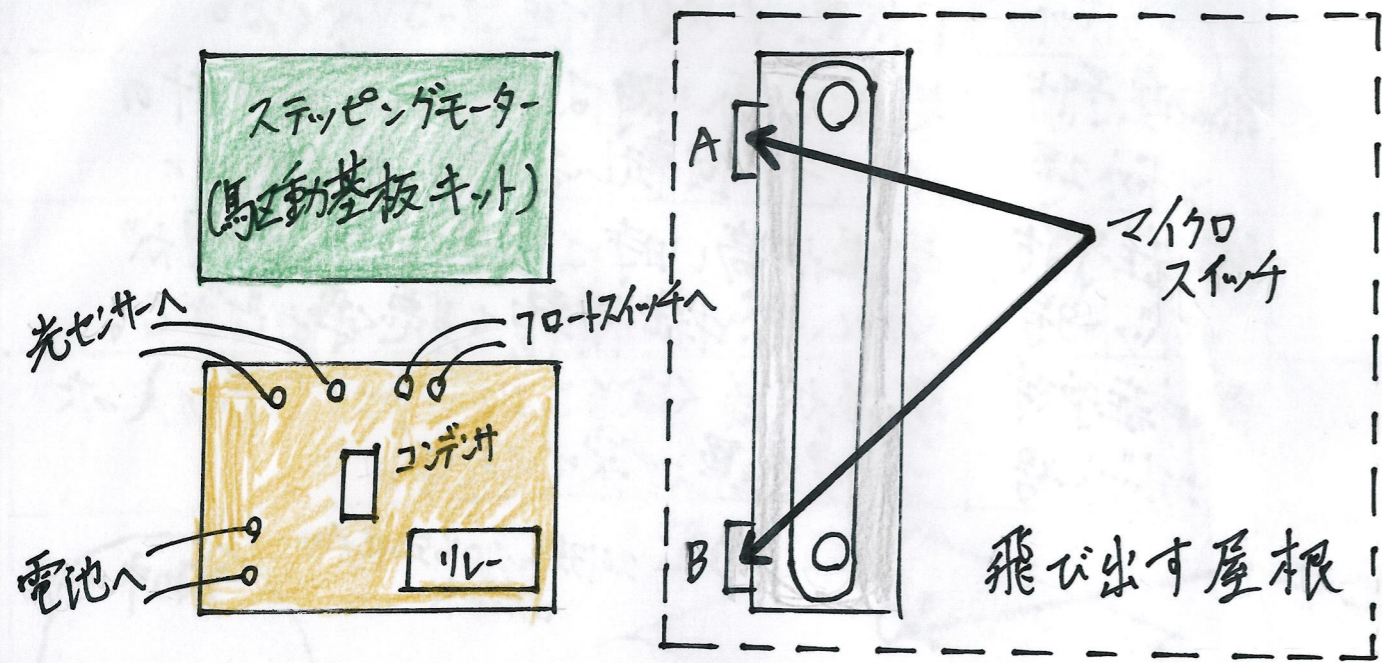 ステッピングモーター
(駆動基板キット)
光センサーへ
フロートスイッチへ
コンデンサ
リレー
電池へ
A
B
マイクロ
スイッチ
飛び出す屋根